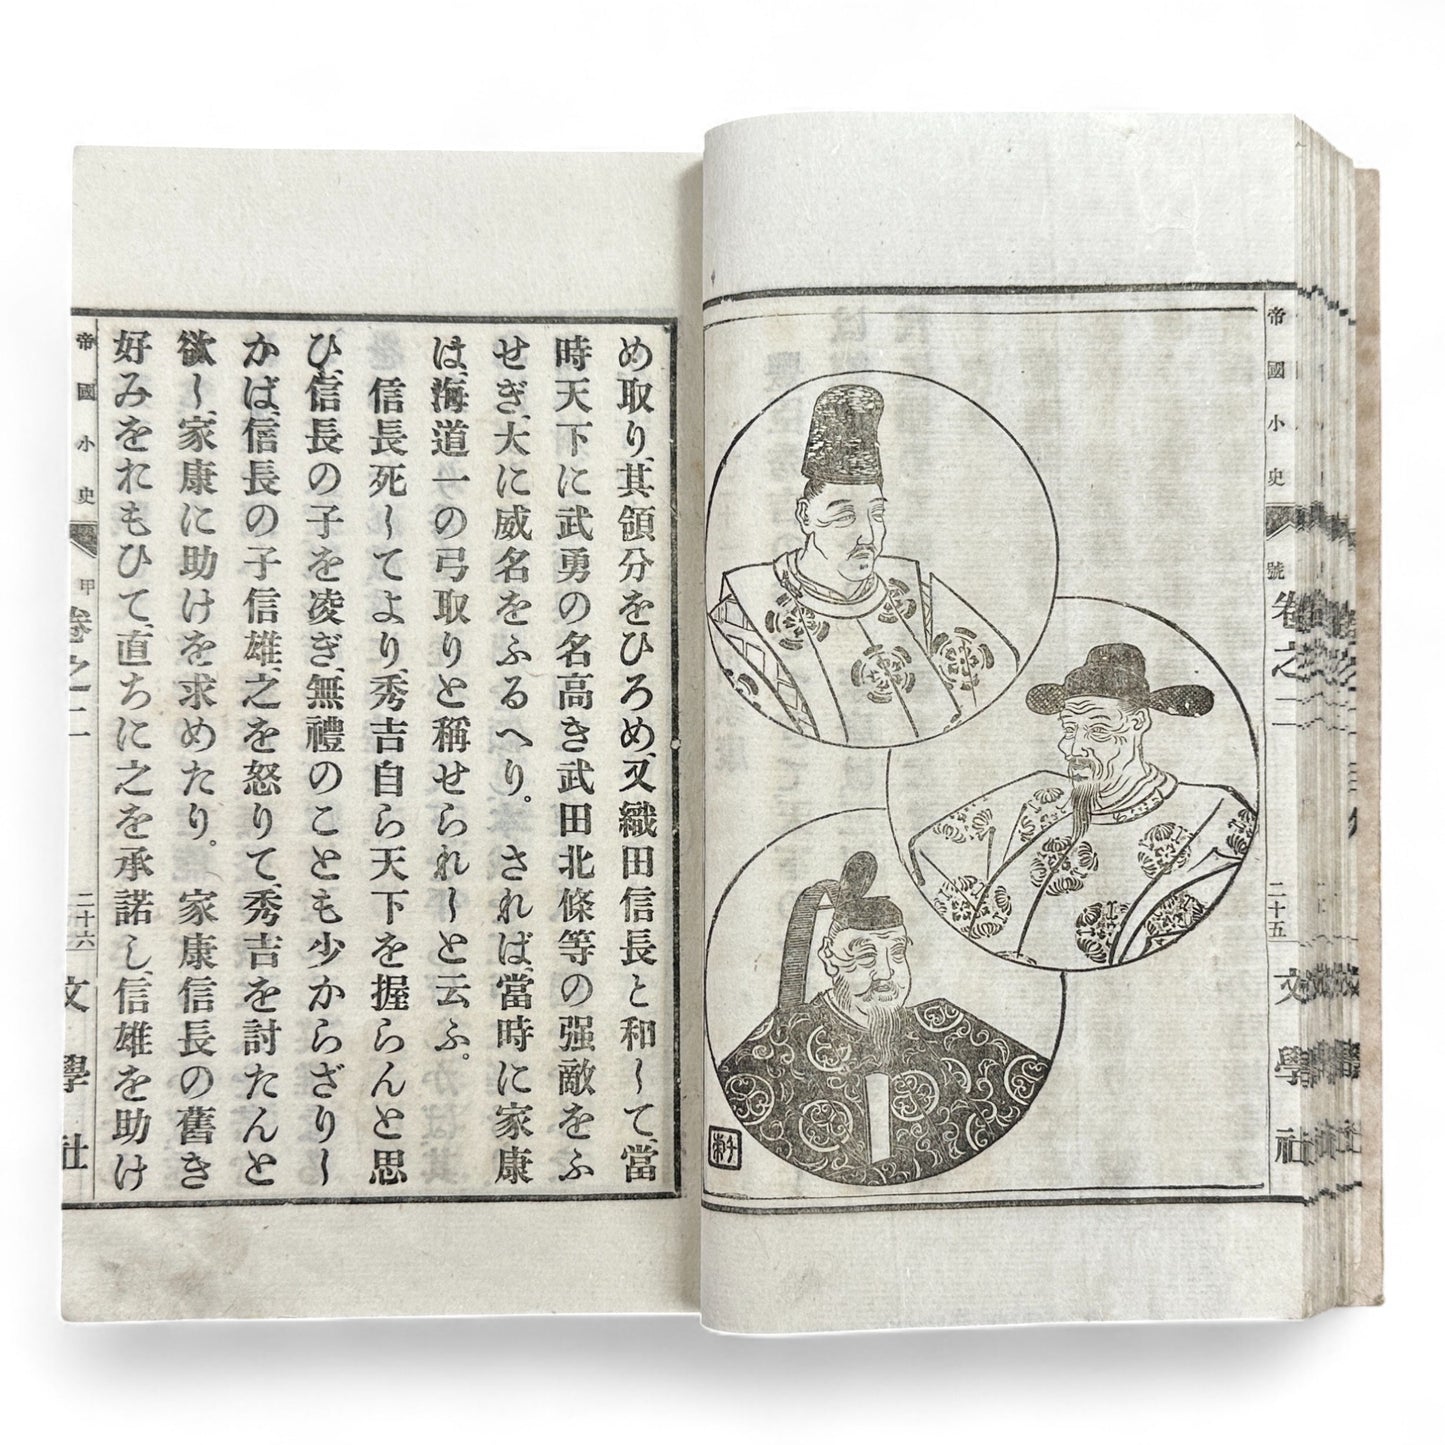 帝國小史
號卷之二
二十五
文學社
め取り、其領分をひろめ、又織田信長と和して、當
時天下に武勇の名高き武田北條等の强敵をふ
せぎ、大に威名をふるへり。されば、當時に家康
は、海道一の弓取りと稱せられしと云ふ。
信長死してより、秀吉自ら天下を握らんと思
ひ、信長の子を凌ぎ、無禮のことも少からざりし
かば、信長の子信雄、之を怒りて、秀吉を討たんと
欲し、家康に助けを求めたり。家康信長の舊き
好みをれもひて、直ちに之を承諾し、信雄を助け
帝國小史
甲
卷之二
二十六
文學社